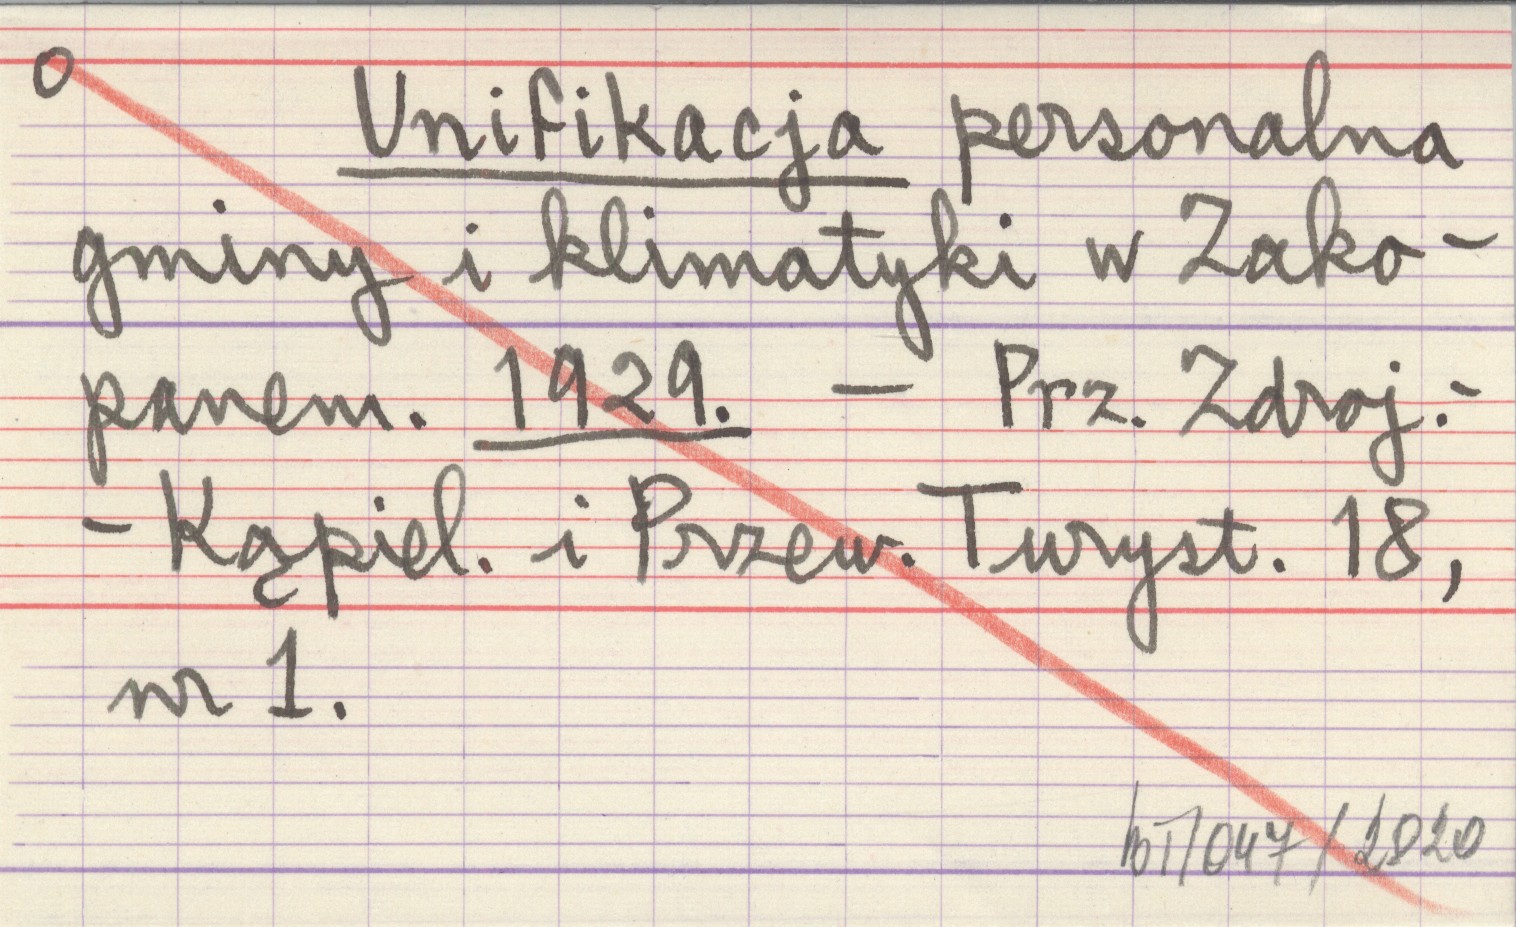 O
Unifikacja personalna
gminy i klimatyki w Zako-
panem. 1929. — Prz. Zdroj.-
- Kąpiel. i Przew. Turyst. 18,
nr 1.
/047/2020